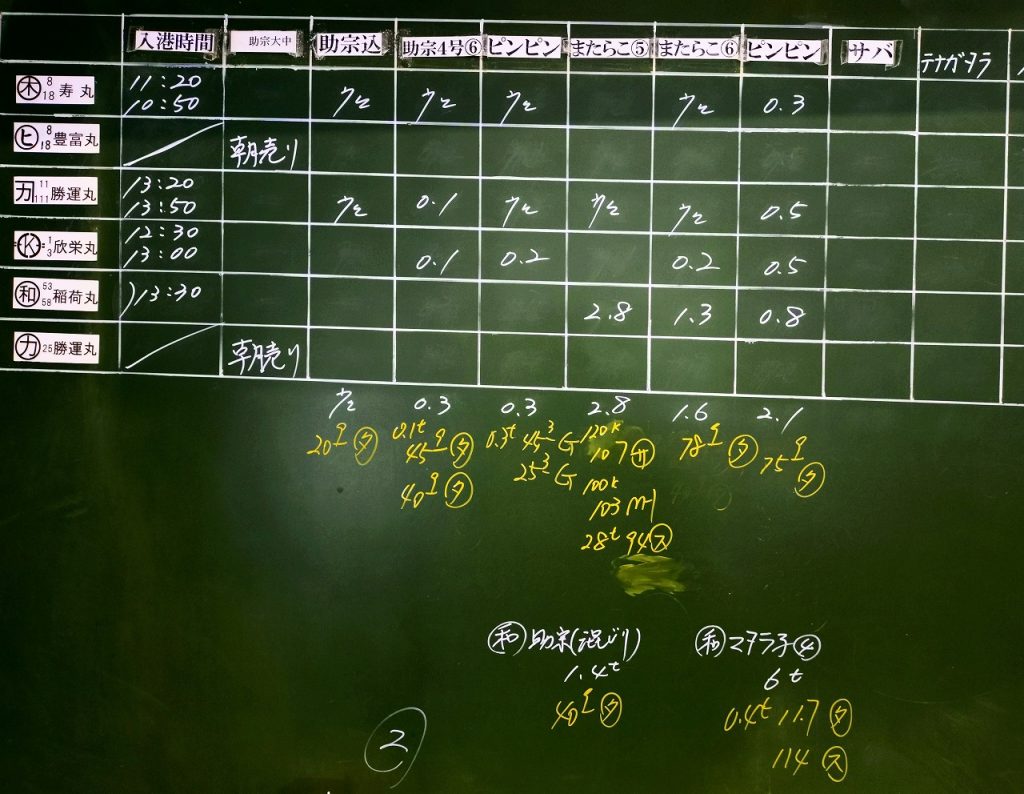 入港時間 助宗大中 助宗込 助宗4号⑥ ピンピン またらこ⑤ またらこ⑥ ピンピン サバ テナガダラ
㊍ 8 18 寿丸 11:20 10:50 ウエ ウエ ウエ ウエ 0.3
ヒ 8 18 豊富丸 朝売り
カ 11 111 勝運丸 13:20 13:50 ウエ 0.1 ウエ ウエ ウエ 0.5
K 1 3 欣栄丸 12:30 13:00 0.1 0.2 0.2 0.5
和 53 58 稲荷丸 13:30 2.8 1.3 0.8
カ 25 勝運丸 朝売り
0.3 0.3 2.8 1.6 2.1
20 タ 0.1t 45 タ 0.3t 45 G 120K 78 タ 75 タ
107 サ
40 タ 25 G 100K
103
28t 94 ス
和 助宗(混じり) 和 マタラ子④
1.4t 6t
40 タ 0.4t 11.7 タ
114 ス
2